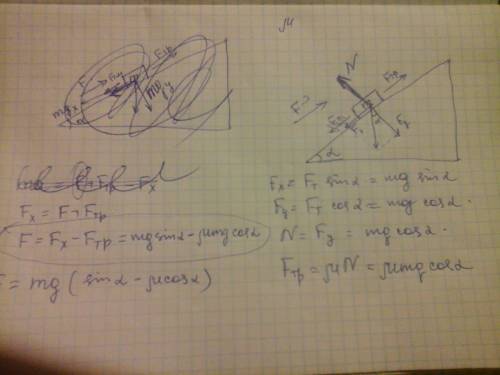 μ
N
Fтр
F?
α
Fx = Fт sinα = mg sinα
Fy = Fт cosα = mg cosα.
N = Fy = mg cosα.
Fтр = μN = μmg cosα
Fx = F + Fтр
F = Fx - Fтр = mg sinα - μmg cosα
F = mg (sinα - μcosα)